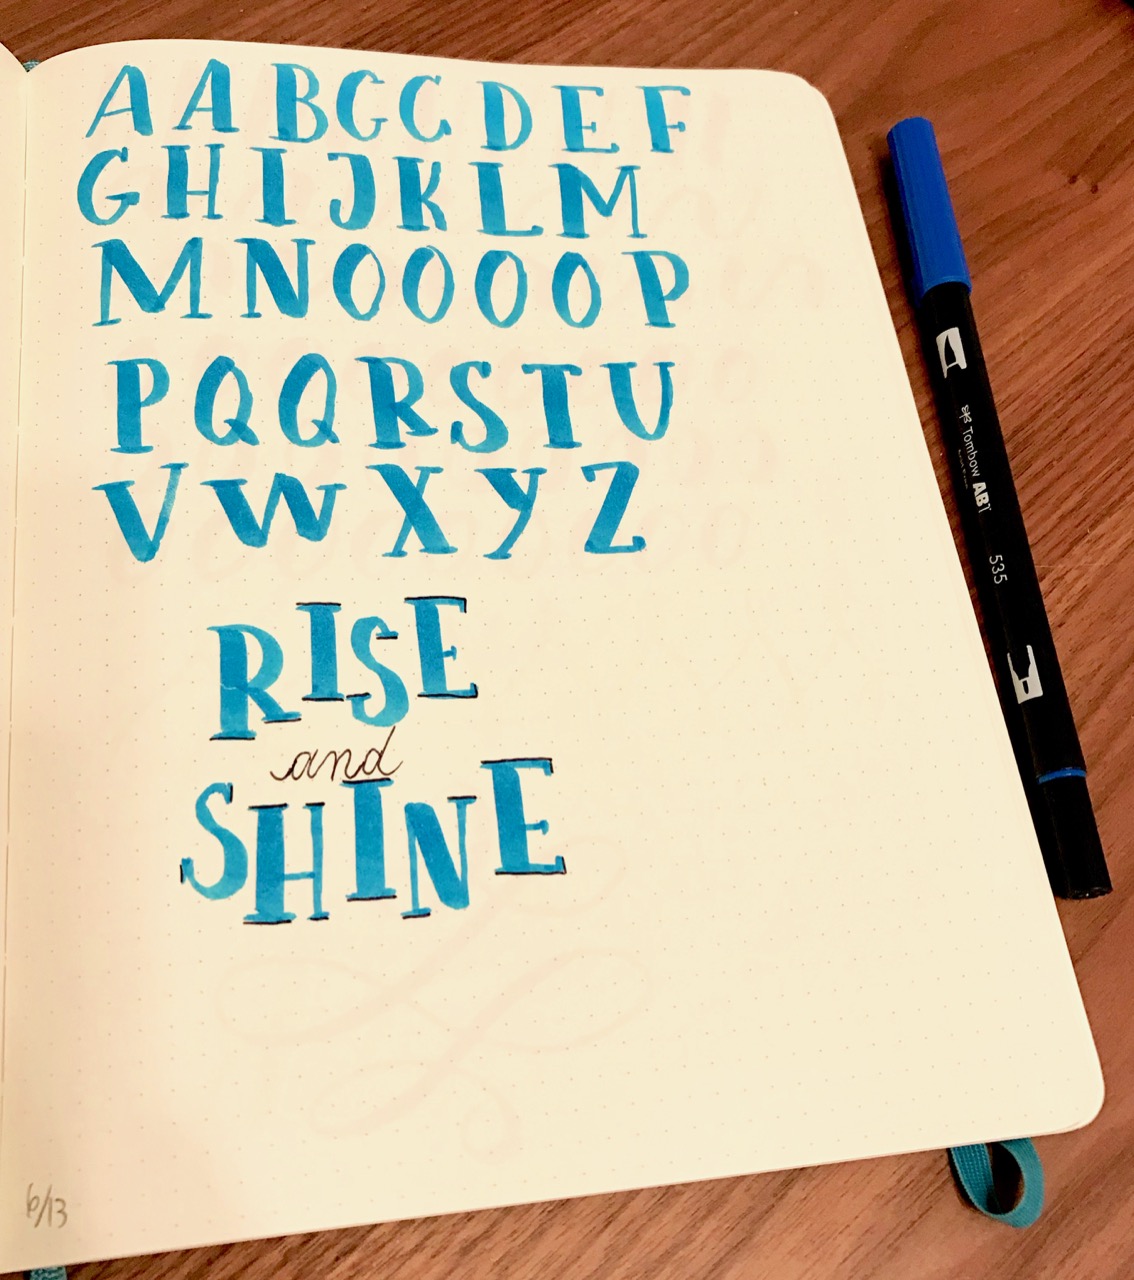 A A B C C D E F
G H I J K L M
M N O O O O P
P Q Q R S T U
V W X Y Z
RISE
and
SHINE
6/13
Tombow ABT
535